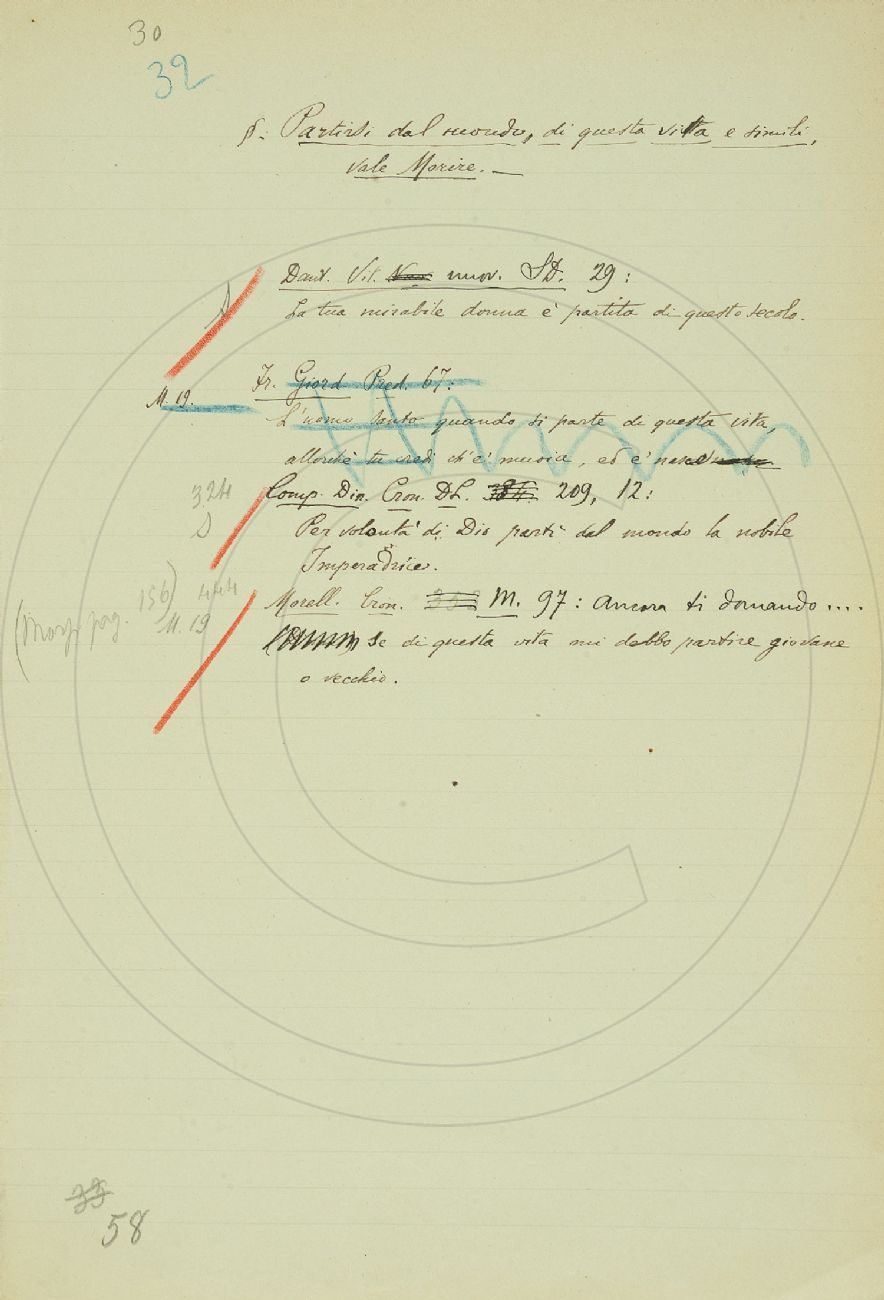 30
32
§: Partirsi dal mondo, di questa vita e simili,
vale Morire. —
Dant. Vit. nuov. SD. 29:
S
La tua mirabile donna è partita di questo secolo.
Fr. Giord Pred. 67:
M. 19.
L'uomo santo quando si parte di questa vita,
allorchè tu credi ch'e' muoia, ed e' nasce
324
Comp. Din. Cron. DL. 209, 12:
S
Per volontà di Dio partì dal mondo la nobile
Imperadrice.
444
Morell. Cron. M. 97: Ancora ti domando....
(Morp pag. 156)
M. 19
se di questa vita mi debbo partire giovane
o vecchio.
35
58